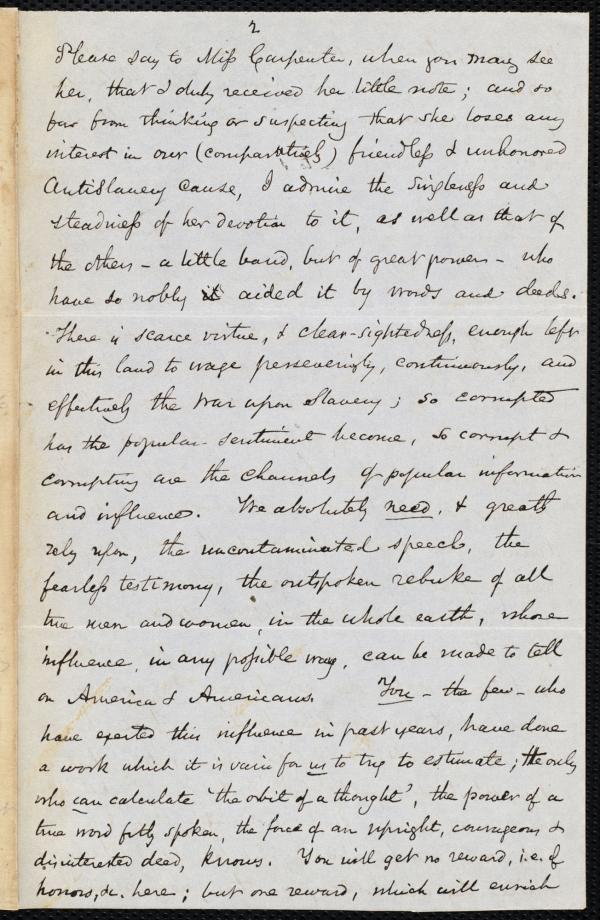 2
Please say to Miss Carpenter, when you may see
her, that I duly received her little note; and so
far from thinking or suspecting that she loses any
interest in our (comparatively) friendless & unhonored
Antislavery Cause, I admire the singleness and
steadiness of her devotion to it, as well as that of
the others – a little band, but of great powers – who
have so nobly it aided it by words and deeds.
There is scarce virtue, & clear-sightedness, enough left
in this land to wage perseveringly, continuously, and
effectively the War upon Slavery; so corrupted
has the popular sentiment become, so corrupt &
corrupting are the channels of popular information
and influence. We absolutely need, & greatly
rely upon, the uncontaminated speech, the
fearless testimony, the outspoken rebuke of all
true men and women, in the whole earth, whose
influence, in any possible way, can be made to tell
on America & Americans. You – the few – who
have exerted this influence in past years, have done
a work which it is vain for us to try to estimate; the only
who can calculate 'the orbit of a thought', the power of a
true word fitly spoken, the force of an upright, courageous &
disinterested deed, knows. You will get no reward, i.e. of
honors, &c. here; but one reward, which will enrich